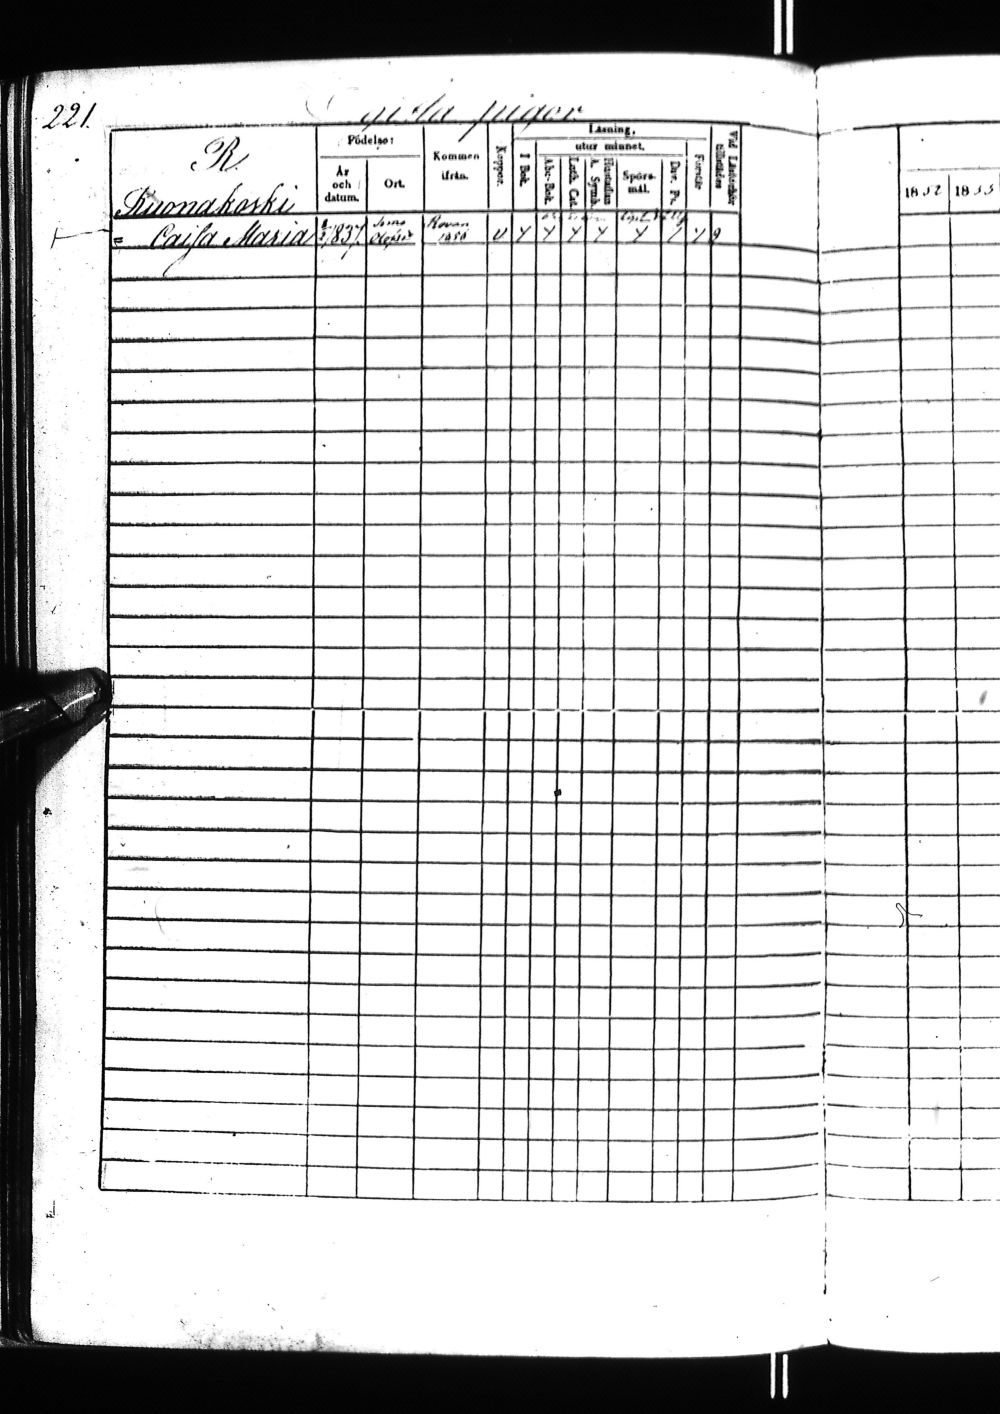 221.
Ogifta pigor
R
Födelse:
Kommen ifrån.
Koppor.
Läsning,
utur minnet.
Vid Läsförhör tillstädes
År och datum.
Ort.
I Bok.
Abc-Bok.
Luth. Cat.
Hustaflan A. Symb.
Spörs-mål.
Dav. Ps.
Förstår
1852 1853
Kuonakoski
= Caisa Maria 1837 Simo Rovan 1850 v